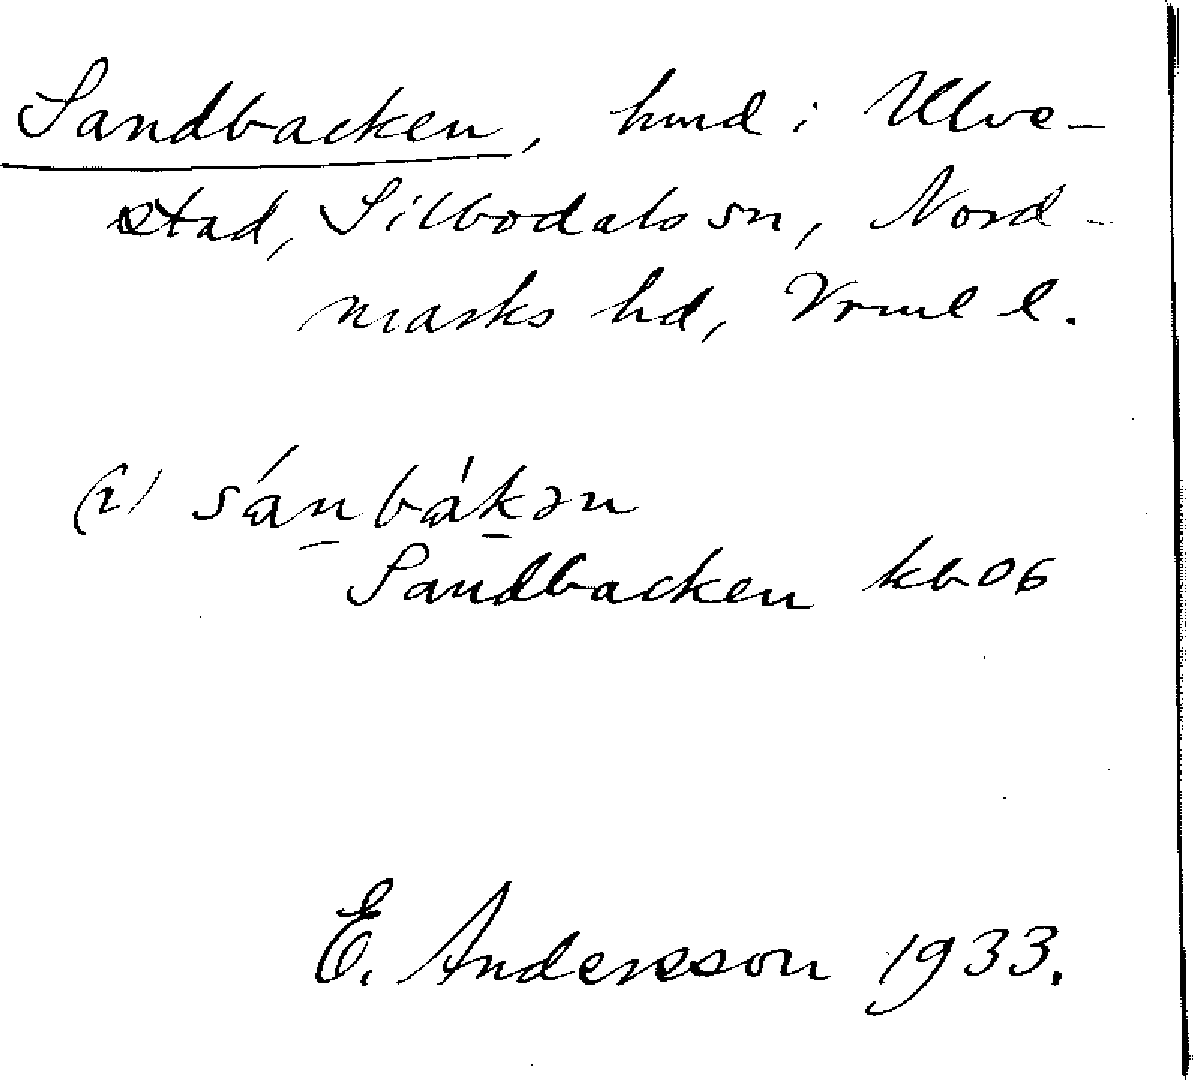 Sandbacken, hmd i Ulve-
stad, Silbodals sn, Nord-
marks hd, Vrml l.
(i) sánbákən
Sandbacken kb06
E. Andersson 1933.